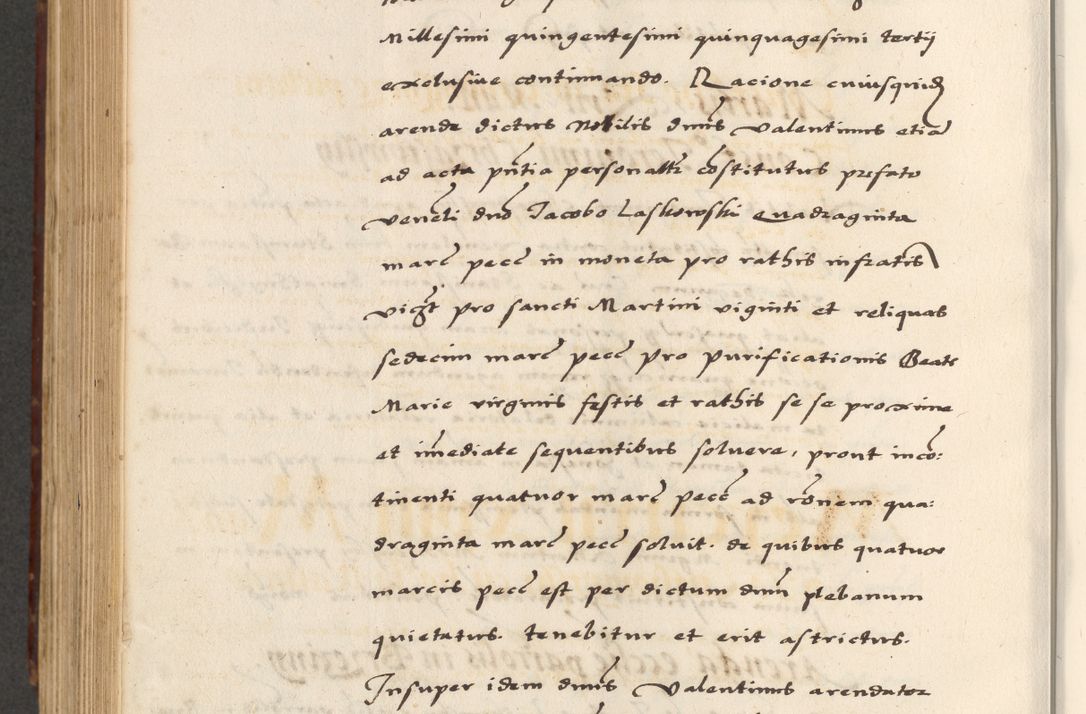 Millesimi quingentesimi quinquagesimi tertij
exclusive continuando. Racione cuiusquidem
arende dictus Nobilis dnus Valentinus etia
ad acta pntia personaltr costitutus prefato
veneli dno Jacobo Laskowski Quadraginta
marc pecc in moneta pro rathis infratis
vigt pro sancti Martini viginti et reliquas
sedecim marc pecc pro Purificationis Beate
Marie virginis festis et rathis se se proxime
et imediate sequentibus solvere, prout inco:
tinenti quatuor marc pecc ad ronem qua:
draginta marc pecc solvit. de quibus quatuor
marcis pecc est per dictum dnm plebanum
quietatus. tenebitur et erit astrictus.
Insuper idem dnus Valentinus arendator